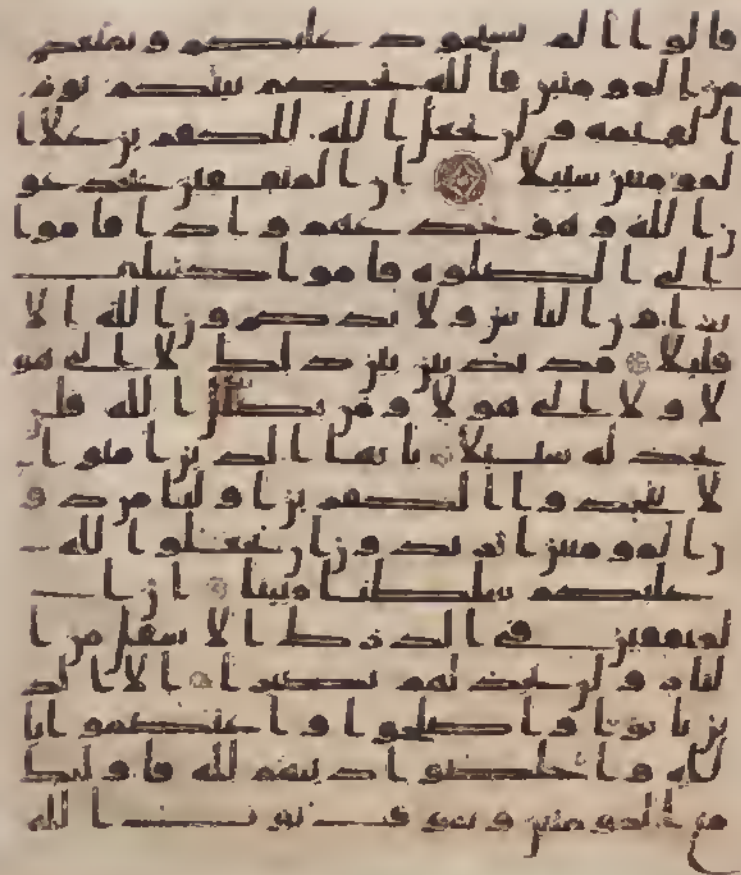 قالوا الم نستحوذ عليكم ونمنعكم
من المومنين فالله يحكم بينكم يوم
ا لقيمه ولن يجعل الله للكفرين على ا
لمومنين سبيلا ان المنفقين يخدعو
ن الله وهو خدعهم واذا قاموا
الى الصلوه قاموا كسلى
يراون الناس ولا يذكرون الله الا
قليلا مذبذبين بين ذلك لا الى هو
لا ولا الى هولا ومن يضلل الله فلن
تجد له سبيلا يايها الذين امنوا
لا تتخذوا الكفرين اوليا من دو
ن المومنين اتريدون ان تجعلوا لله
عليكم سلطنا مبينا ان ا
لمنفقين في الدرك الاسفل من ا
لنار ولن تجد لهم نصيرا الا الذ
ين تابوا واصلحوا واعتصموا با
لله واخلصوا دينهم لله فاوليك
مع المومنين وسوف يوت الله